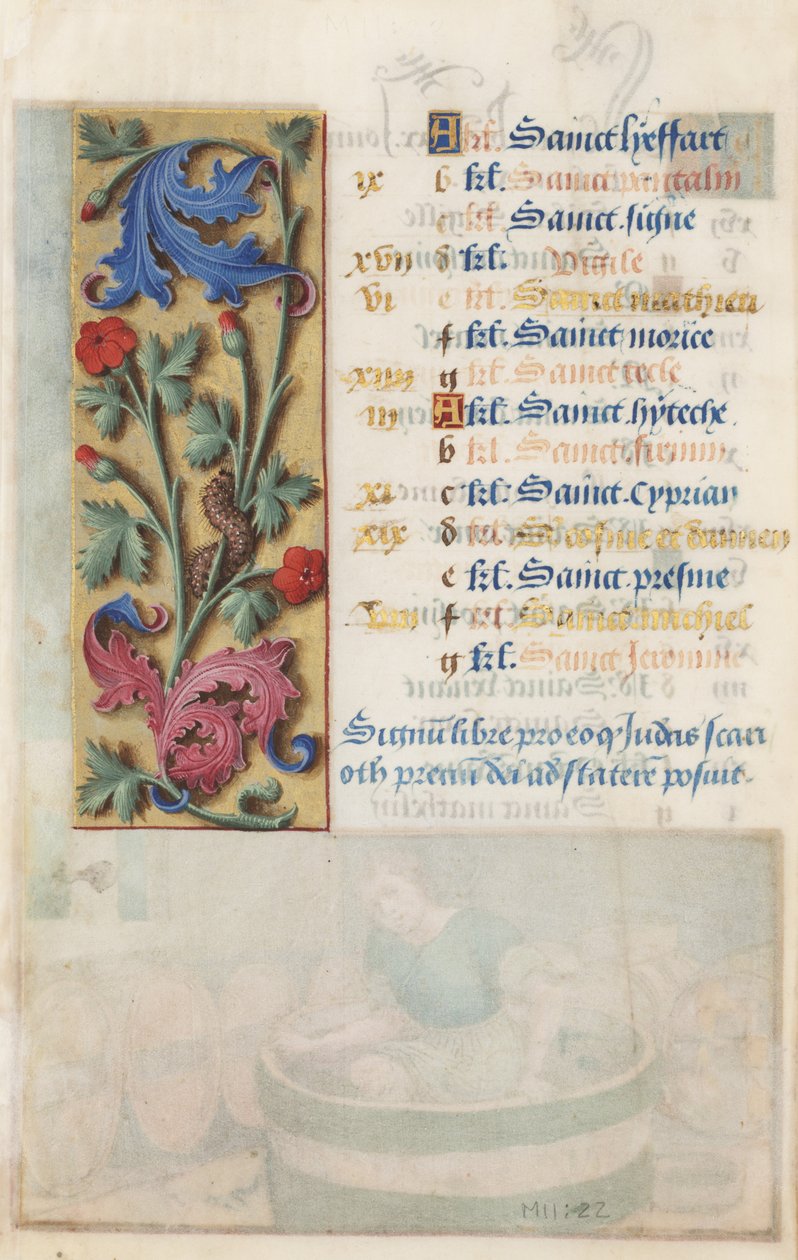 A kl. Sainct lyeffart
ix b kl. Sainct pentalin
c kl. Sainct signe
xvii d kl. Vigile
vi e kl. Sainct mathieu
f kl. Sainct morice
xiiii g kl. Sainct tecle
iii A kl. Sainct hyteche
b kl. Sainct firmin
xi c kl. Sainct Cyprian
xix d kl. S cosme et damien
e kl. Sainct presme
viii f kl. Sainct michiel
g kl. Sainct Jeromme
Signū libre pro eo qͥ Judas scari
oth preciū dei ad staterē posuit.
M11:22